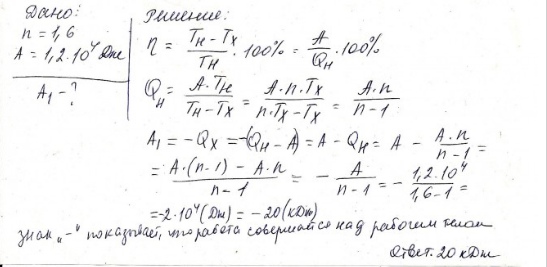 Дано:
n = 1,6
A = 1,2·10⁴ Дж
A₁ - ?
Решение:
η = (Tн - Tх)/Tн · 100% = A/Qн · 100%
Qн = (A·Tн)/(Tн - Tх) = (A·n·Tх)/(n·Tх - Tх) = (A·n)/(n-1)
A₁ = -Qх = -(Qн - A) = A - Qн = A - (A·n)/(n-1) =
= (A·(n-1) - A·n)/(n-1) = - A/(n-1) = - (1,2·10⁴)/(1,6-1) =
= -2·10⁴(Дж) = -20(кДж)
знак „-" показывает, что работа совершается над рабочим телом
Ответ: 20 кДж